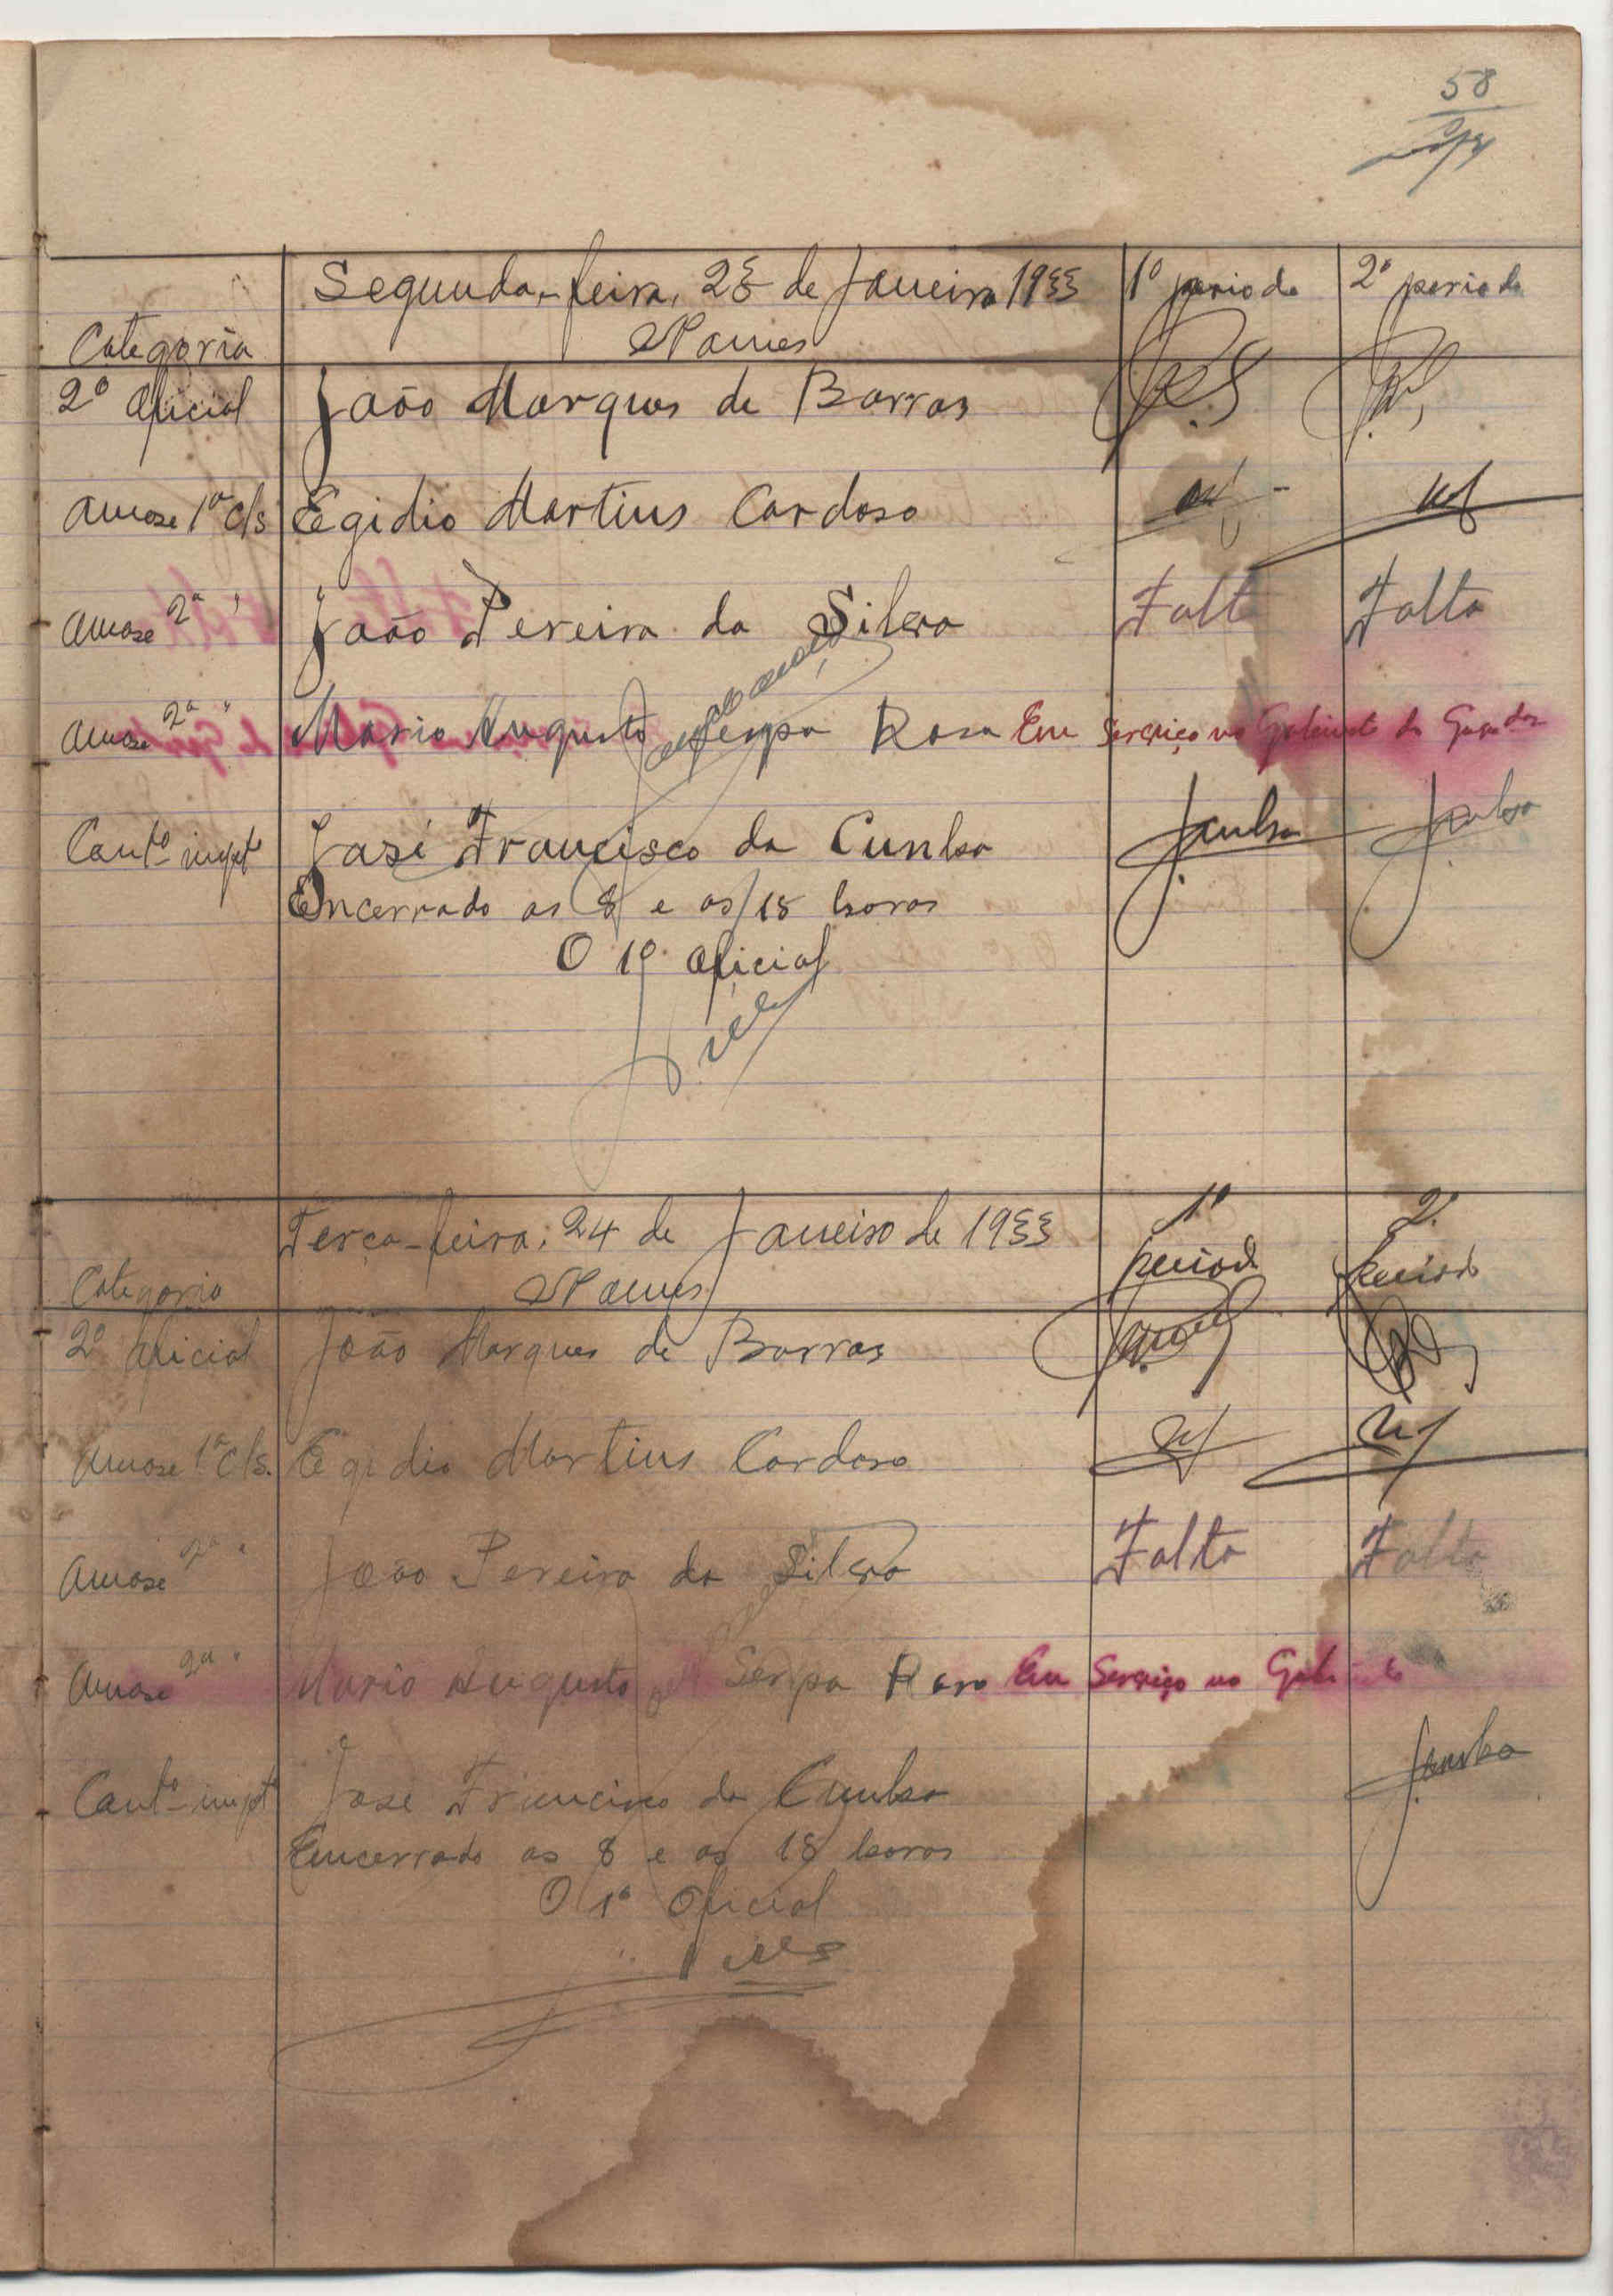 58
Segunda-feira, 23 de Janeiro 1933 1º periodo 2º periodo
Categoria Nomes
2º Oficial João Marques de Barros
Amase 1ª cls Egidio Martins Cardoso
Amase 2ª " João Pereira da Silva Falta Falta
Amase 2ª " Mario Augusto Serpa Rosa Em Serviço no Gabinete do
Contº José Francisco da Cunha JCunha JCunha
Encerrado as 8 e as 18 horas
O 1º Oficial
Terça-feira, 24 de Janeiro de 1933 1º periodo 2º periodo
Categoria Nomes
2º Oficial João Marques de Barros
Amase 1ª cls. Egidio Martins Cardoso
Amase 2ª " João Pereira da Silva Falta Falta
Amase 2ª " Mario Augusto Serpa Rosa Em Serviço no
Contº José Francisco da Cunha JCunha
Encerrado as 8 e as 18 horas
O 1º Oficial